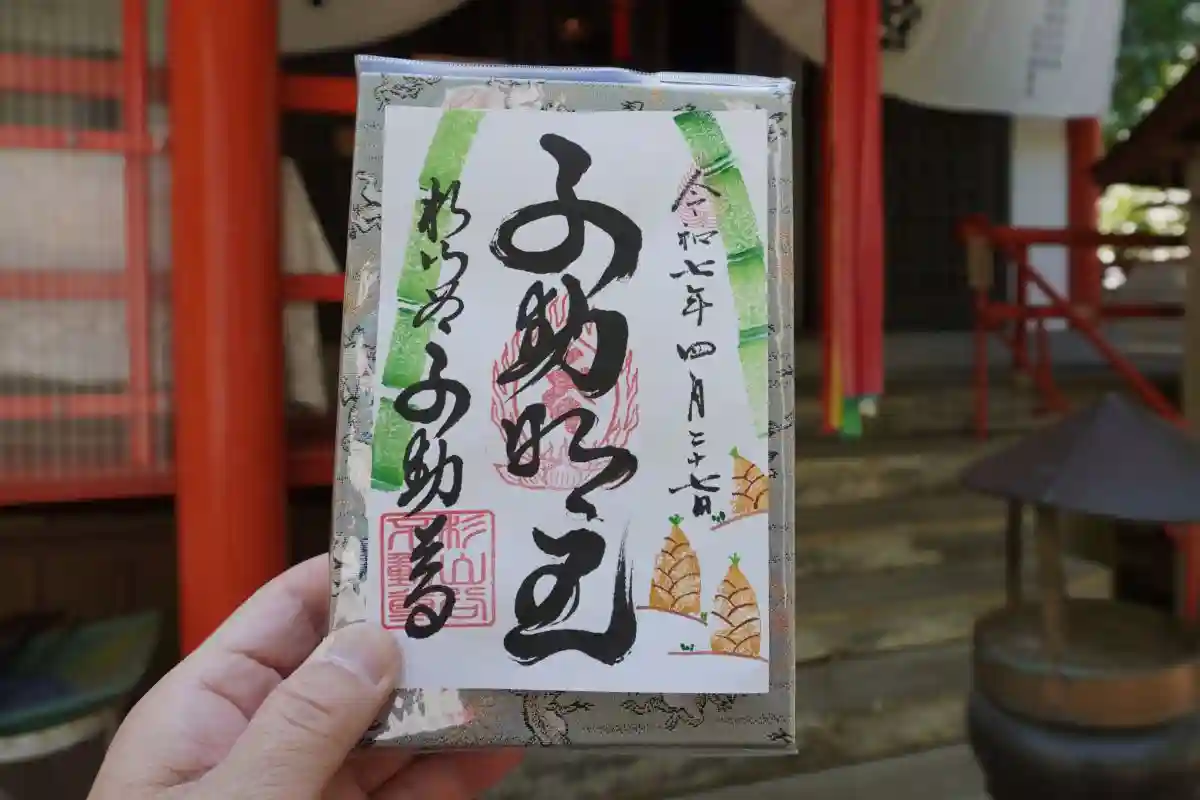 令和七年四月二十七日
不動明王
杉山谷不動尊
杉山谷
不動尊